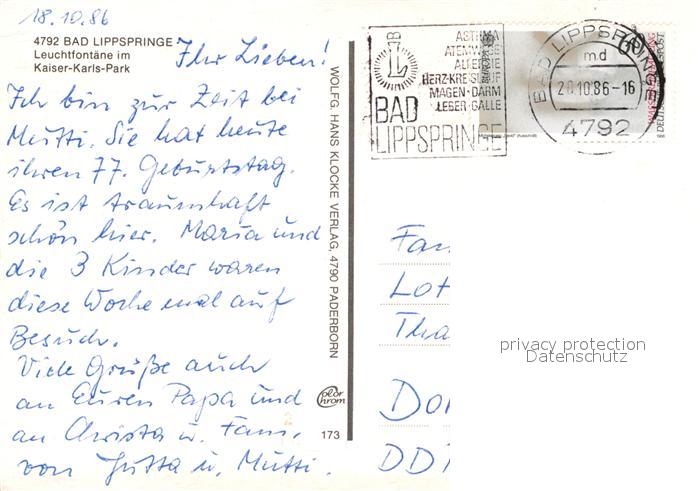 18.10.86
4792 BAD LIPPSPRINGE
Leuchtfontäne im
Kaiser-Karls-Park
Ihr Lieben!
Ich bin zur Zeit bei
Mutti. Sie hat heute
ihren 77. Geburtstag.
Es ist traumhaft
schön hier. Maria und
die 3 Kinder waren
diese Woche mal auf
Besuch.
Viele Grüße auch
an Euren Papa und
an Christa u. Fam.
von Jutta u. Mutti.
WOLFG. HANS KLOCKE VERLAG, 4790 PADERBORN
color
chrom
173
LB
ASTHMA
ATEMWEGE
ALLERGIE
HERZ-KREISLAUF
MAGEN-DARM
LEBER-GALLE
BAD
LIPPSPRINGE
BAD LIPPSPRINGE
md
20.10.86-16
4792
DEUTSCHE BUNDESPOST
Fam
Lot
Tha
privacy protection
Datenschutz
Dor
DDR